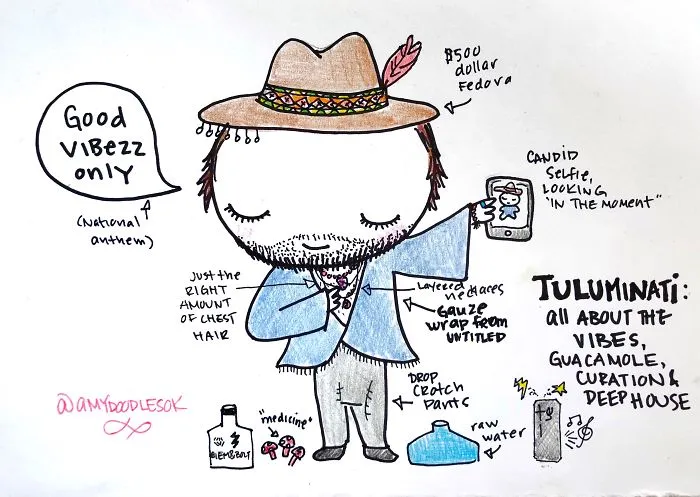 $500
dollar
Fedora
Good
VIBEZZ
only
(National
anthem)
CANDID
Selfie,
LOOKING
"IN THE MOMENT"
JUST the
RIGHT
AMOUNT
OF CHEST
HAIR
Layered
necklaces
Gauze
wrap from
UNTITLED
TULUMINATI:
all ABOUT THE
VIBES,
GUACAMOLE,
CURATION &
DEEP HOUSE
DROP
CROTCH
PANTS
@AMYDOODLESOK
"medicine"
raw
water